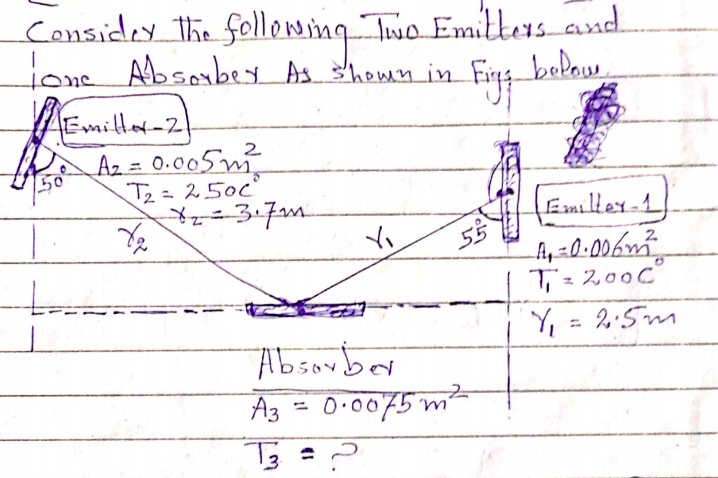 Consider The following Two Emitters and
one Absorber As shown in Figs below
Emitter-2
A2 = 0.005m²
50°
T2 = 250C°
γ2 = 3.7m
γ2
γ1
55°
Emitter-1
A1 = 0.006m²
T1 = 200C°
γ1 = 2.5m
Absorber
A3 = 0.0075m²
T3 = ?